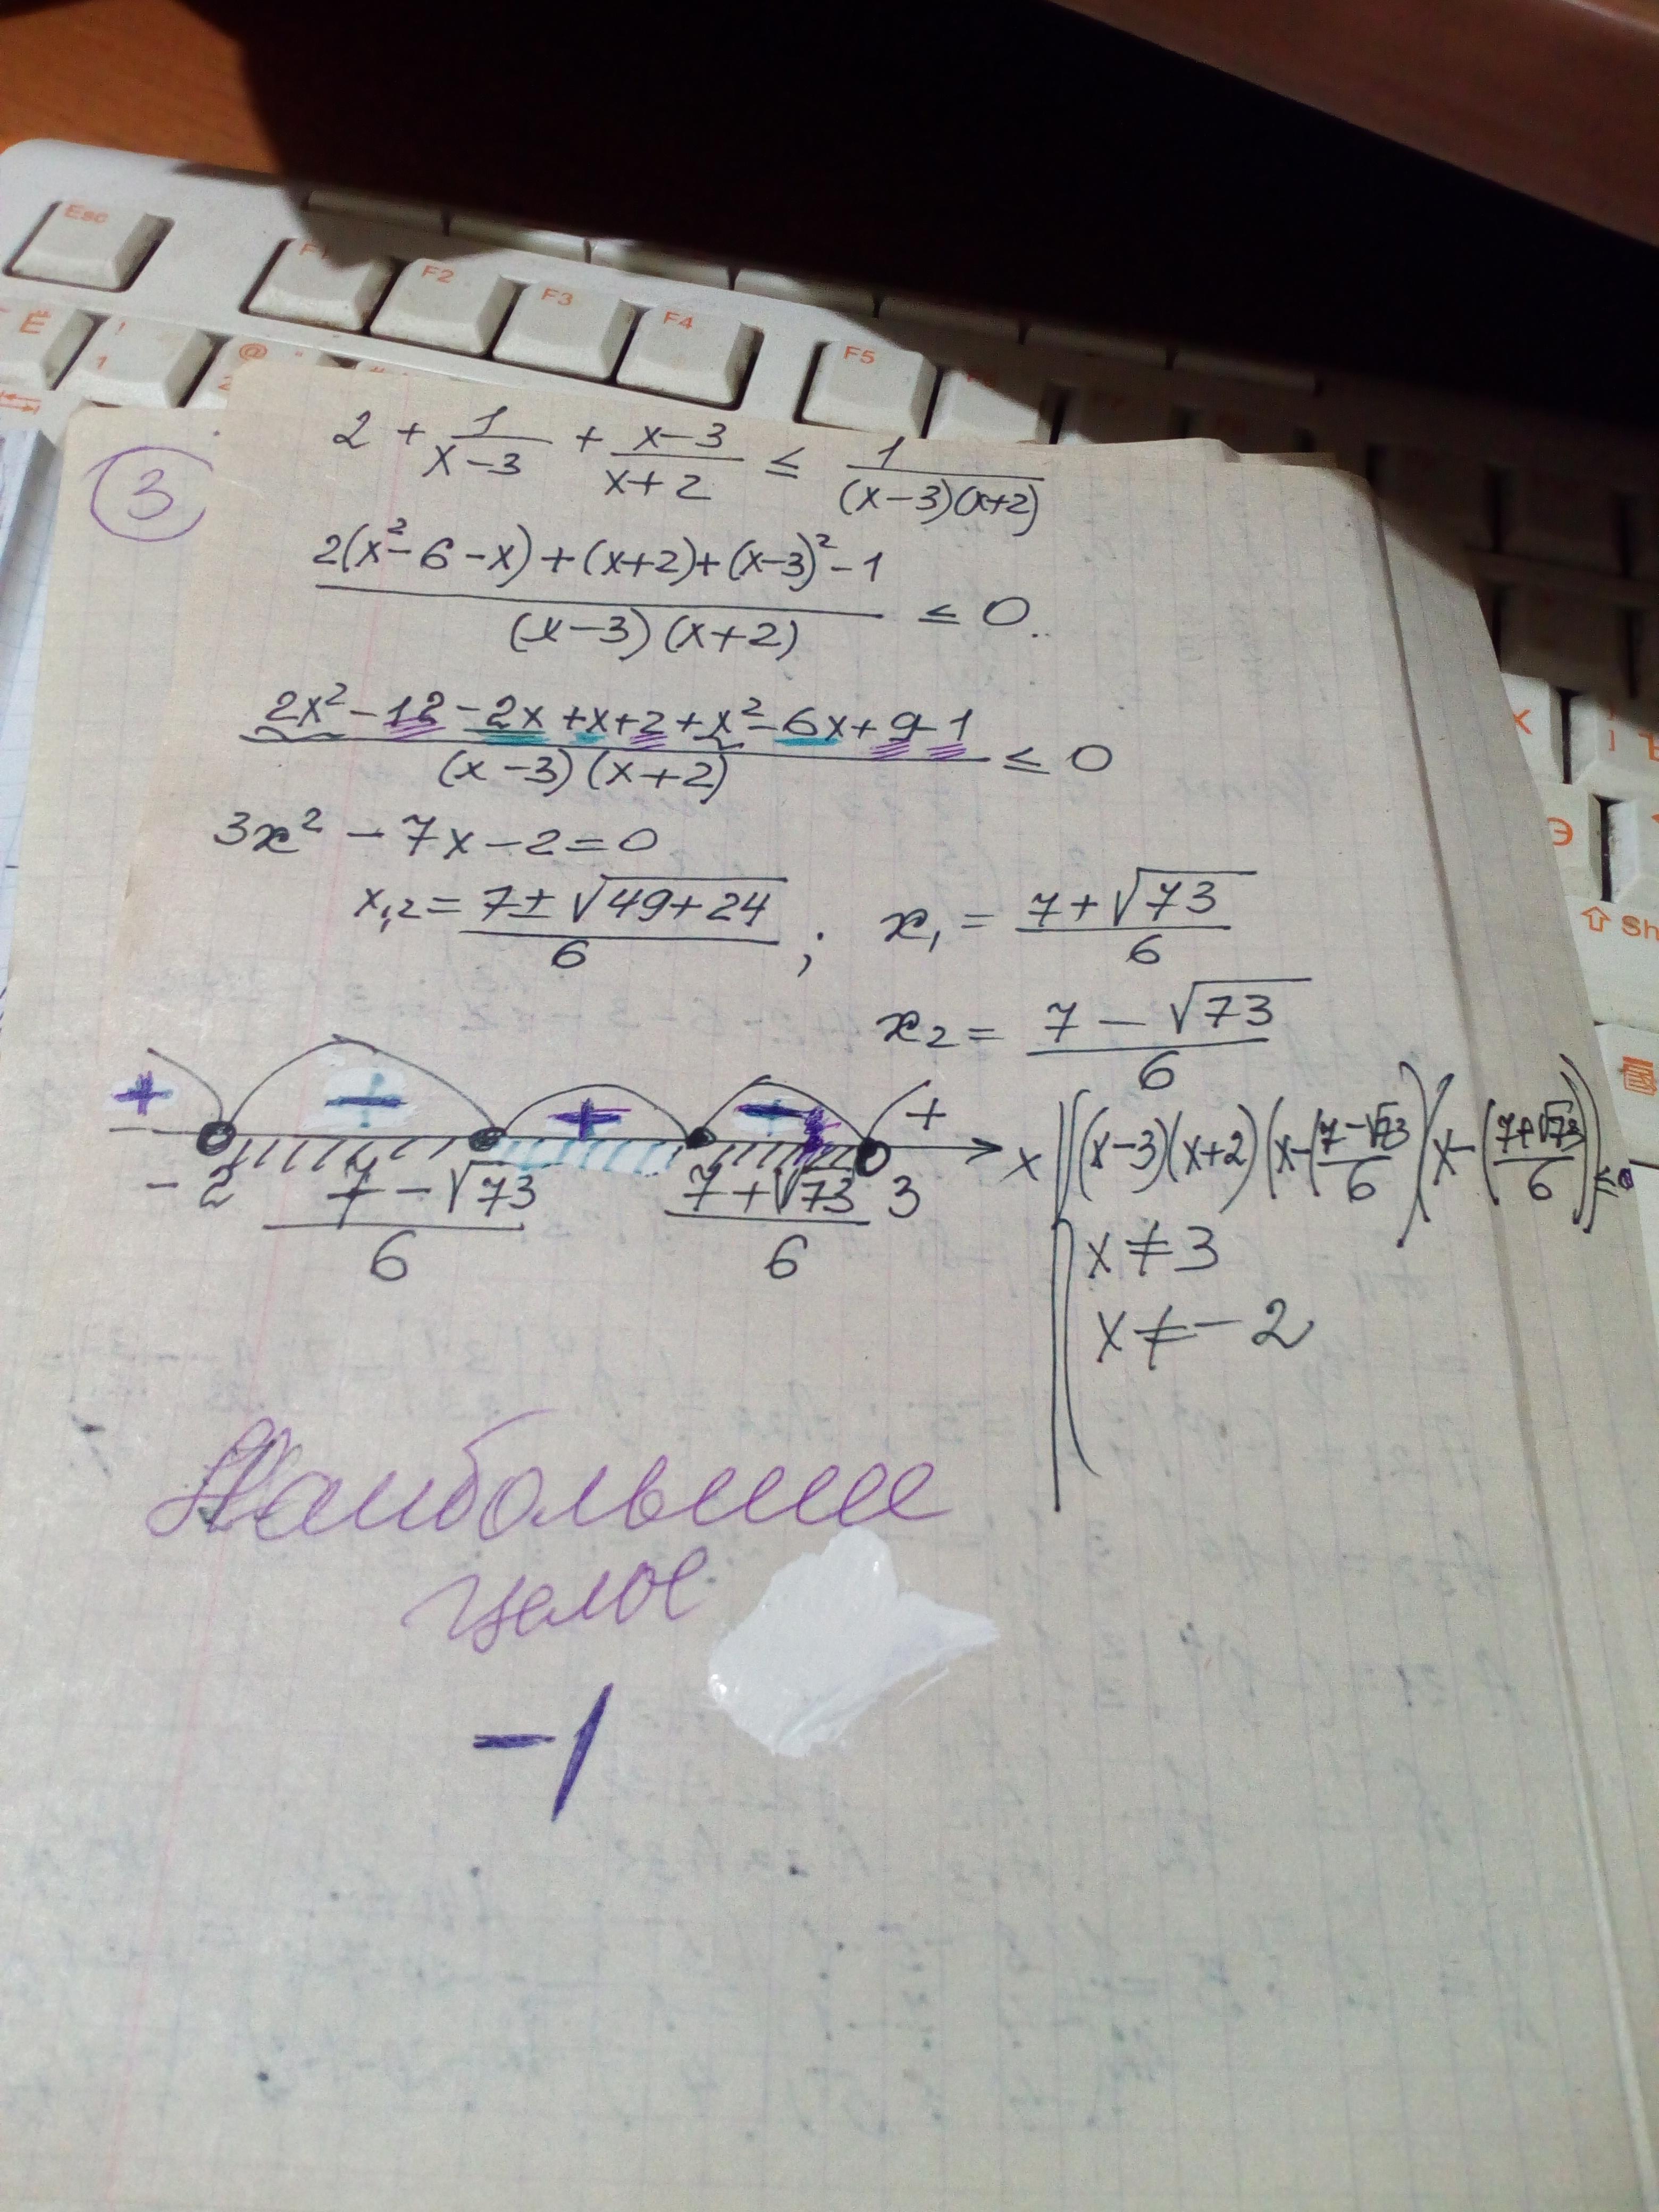 Esc
F1
F2
F3
F4
F5
Ё
!
1
@
2
3
2 + 1/(x-3) + (x-3)/(x+2) ≤ 1/((x-3)(x+2))
(2(x²-6-x)+(x+2)+(x-3)²-1)/((x-3)(x+2)) ≤ 0
(2x²-12-2x+x+2+x²-6x+9-1)/((x-3)(x+2)) ≤ 0
3x² - 7x - 2 = 0
x₁,₂ = (7±√(49+24))/6 ; x₁ = (7+√73)/6
x₂ = (7-√73)/6
+ - + - +
-2 (7-√73)/6 (7+√73)/6 3 x
(x-3)(x+2)(x-(7-√73)/6)(x-(7+√73)/6) ≤ 0
x ≠ 3
x ≠ -2
Наибольшее
целое
-1
Э
Sh